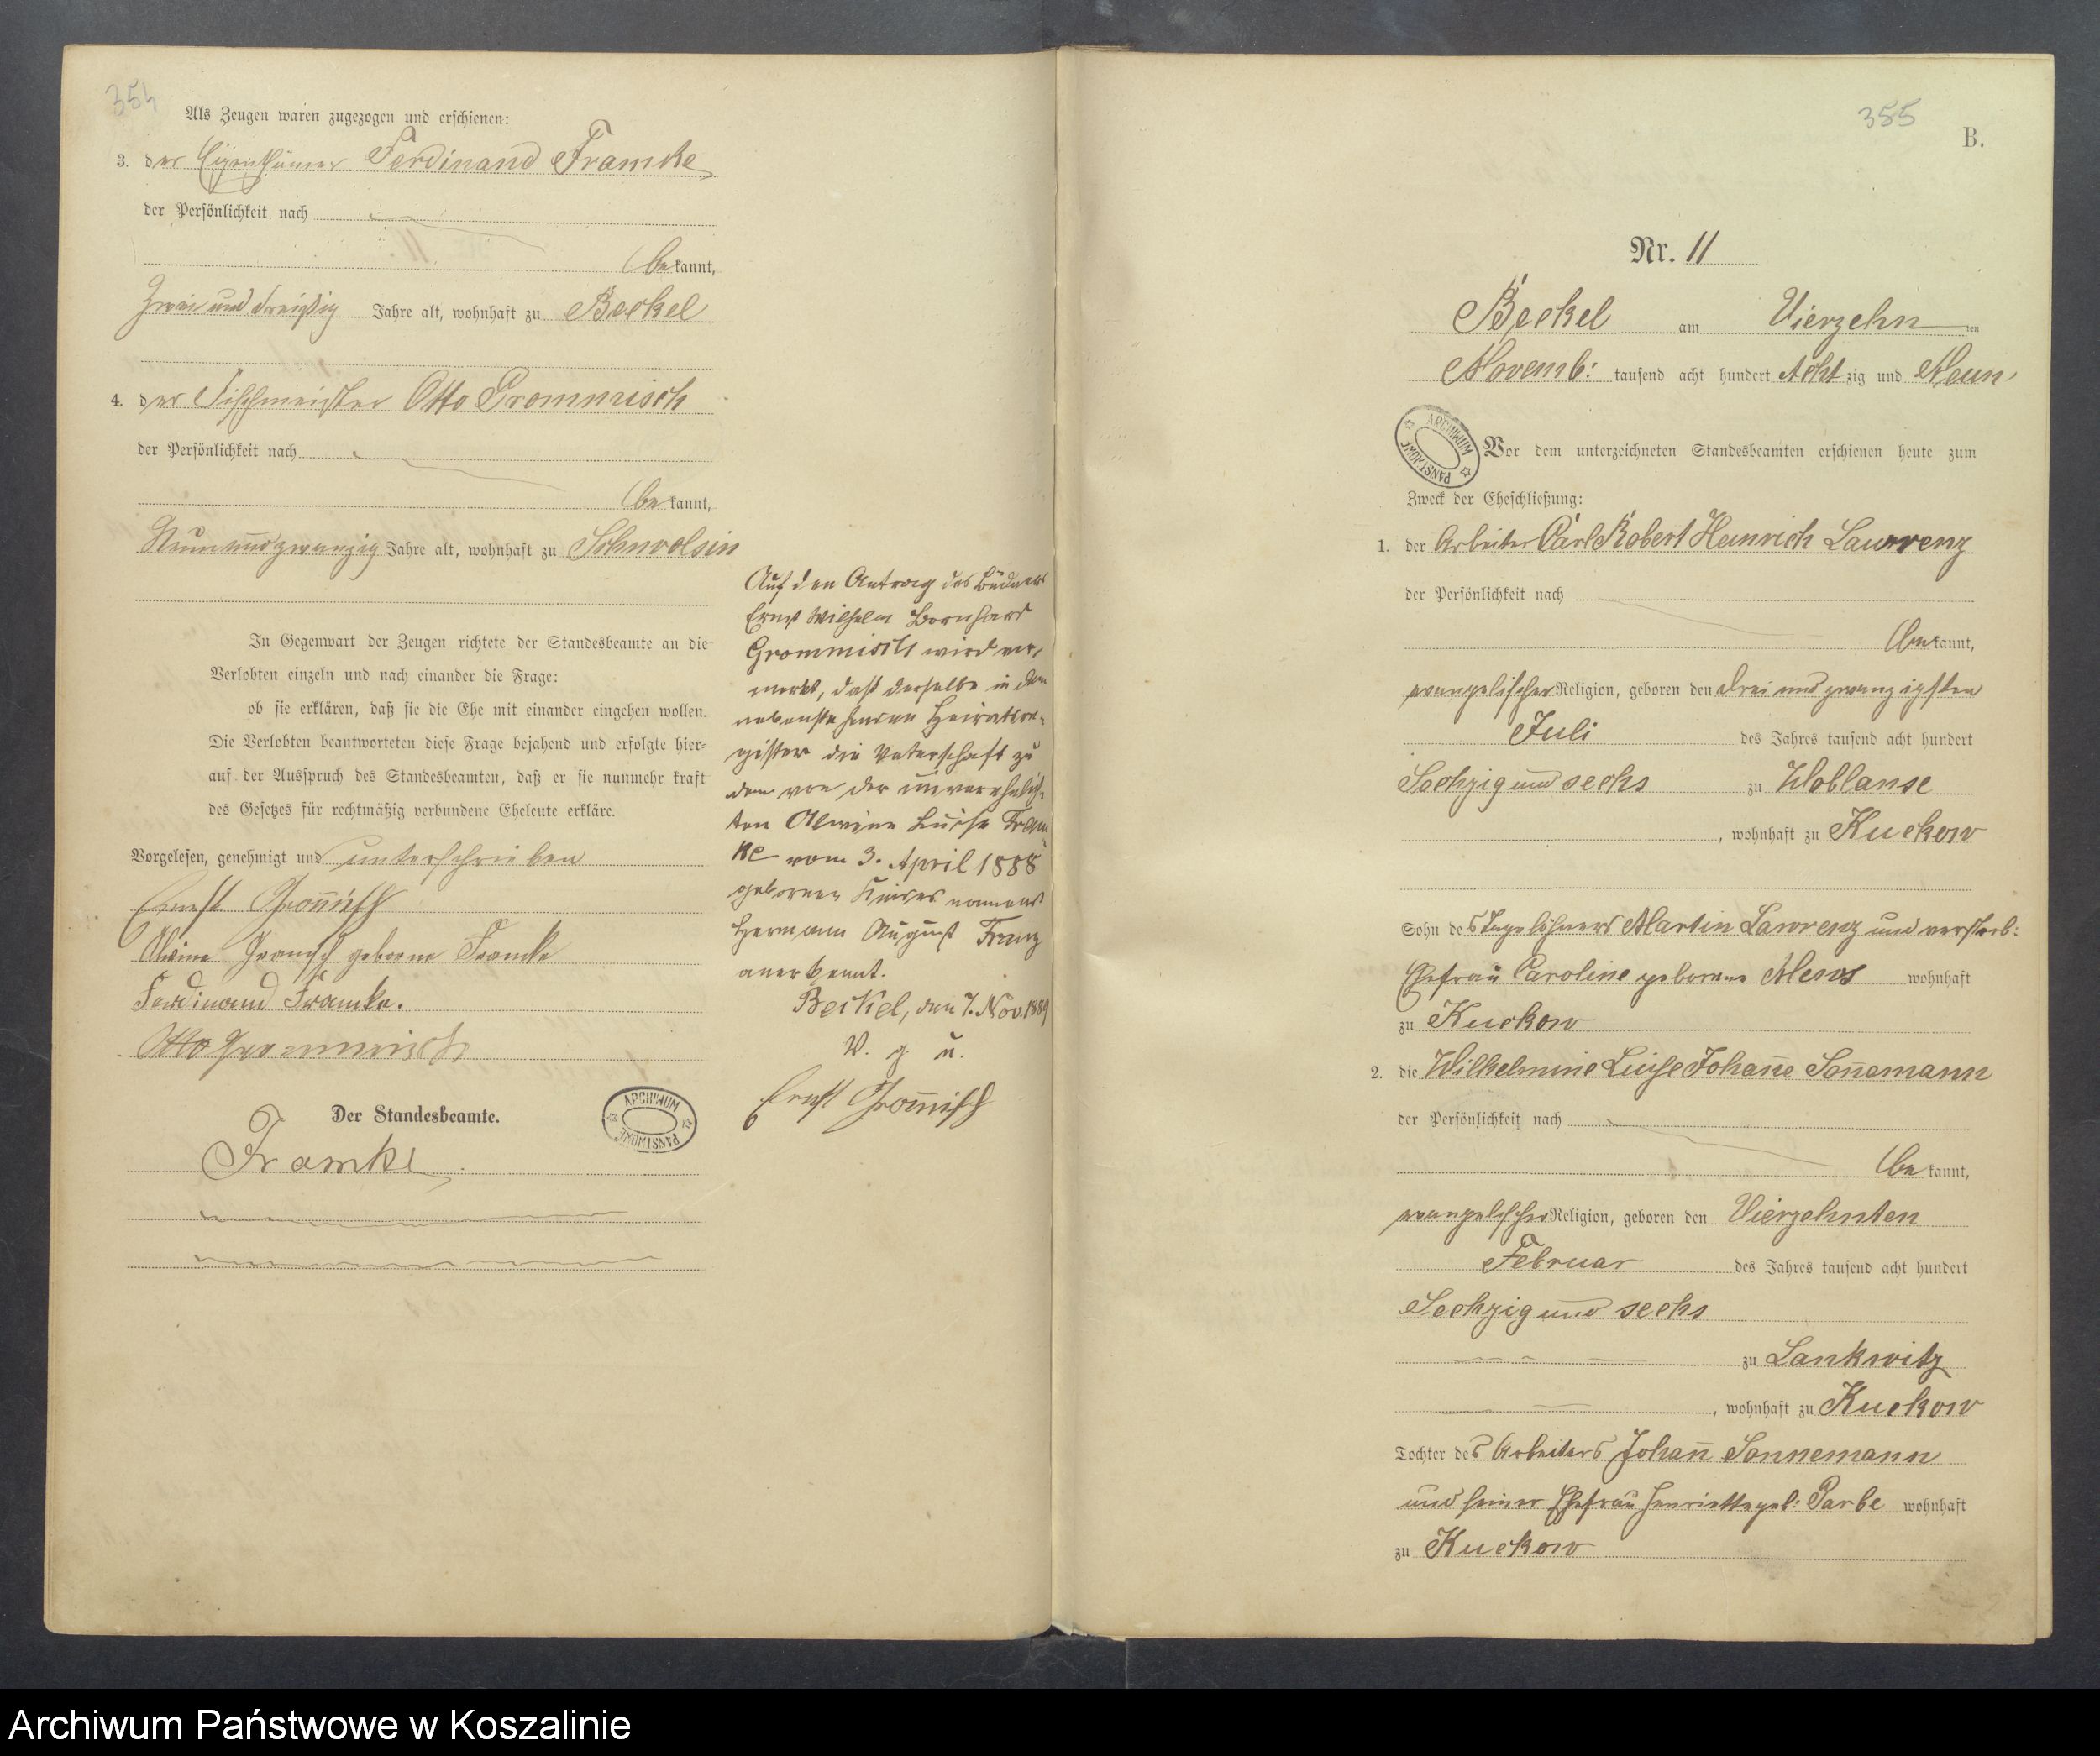 354
Als Zeugen waren zugezogen und erschienen:
3. der Eigenthümer Ferdinand Framke
der Persönlichkeit nach
bekannt,
Zwei und dreißig Jahre alt, wohnhaft zu Beckel
4. der Fischmeister Otto Grommisch
der Persönlichkeit nach
bekannt,
Neun und zwanzig Jahre alt, wohnhaft zu Schwolsin
In Gegenwart der Zeugen richtete der Standesbeamte an die
Verlobten einzeln und nach einander die Frage:
ob sie erklären, daß sie die Ehe mit einander eingehen wollen.
Die Verlobten beantworteten diese Frage bejahend und erfolgte hier-
auf der Ausspruch des Standesbeamten, daß er sie nunmehr kraft
des Gesetzes für rechtmäßig verbundene Eheleute erkläre.
Vorgelesen, genehmigt und unterschrieben
Ernst Grom̄isch
Alwine geborne Framke
Ferdinand Framke.
Otto Grommisch
Der Standesbeamte.
Framke
ARCHIWUM PAŃSTWOWE
Auf den Antrag des Büdners
Ernst Wilhelm Bernhard
Grommisch wird ver-
merkt, daß derselbe in dem
nebenstehenden Heiratsre-
gister die Vaterschaft zu
dem von der unverehelich-
ten Alwine Luise Fram
ke vom 3. April 1888
geborenen Kindes namens
Hermann August Franz
anerkennt.
Beckel, den 7. Nov. 1889
V. g. u.
Ernst Grom̄isch
355
B.
Nr. 11
Beckel am Vierzehn ten
Novemb: tausend acht hundert Acht zig und Neun
ARCHIWUM PAŃSTWOWE
Vor dem unterzeichneten Standesbeamten erschienen heute zum
Zweck der Eheschließung:
1. der Arbeiter Carl Robert Heinrich Lawrenz
der Persönlichkeit nach
bekannt,
evangelischer Religion, geboren den drei und zwanzigsten
Juli des Jahres tausend acht hundert
Sechzig und sechs zu Woblanse
, wohnhaft zu Kuckow
Sohn des Tagelöhners Martin Lawrenz und verstorb:
Ehefrau Caroline geborene Mews wohnhaft
zu Kuckow
2. die Wilhelmine Luise Johan̄e Son̄emann
der Persönlichkeit nach
bekannt,
evangelischer Religion, geboren den Vierzehnten
Februar des Jahres tausend acht hundert
Sechzig und sechs
zu Lankwitz
, wohnhaft zu Kuckow
Tochter des Arbeiters Johan̄ Sonnemann
und seiner Ehefrau Henriette geb: Garbe wohnhaft
zu Kuckow
Archiwum Państwowe w Koszalinie